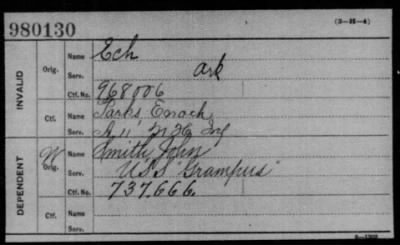 980130
(3-25-4)
INVALID
Orig.
Name Ech
Serv. Ark
Ctf. No. 968006
Ctf.
Name Parks, Enoch
Serv. A 11 Inf
DEPENDENT
W
Orig.
Name Smith, John
Serv. U.S.S "Grampus"
Ctf. No. 737,666.
Ctf.
Name
Serv.